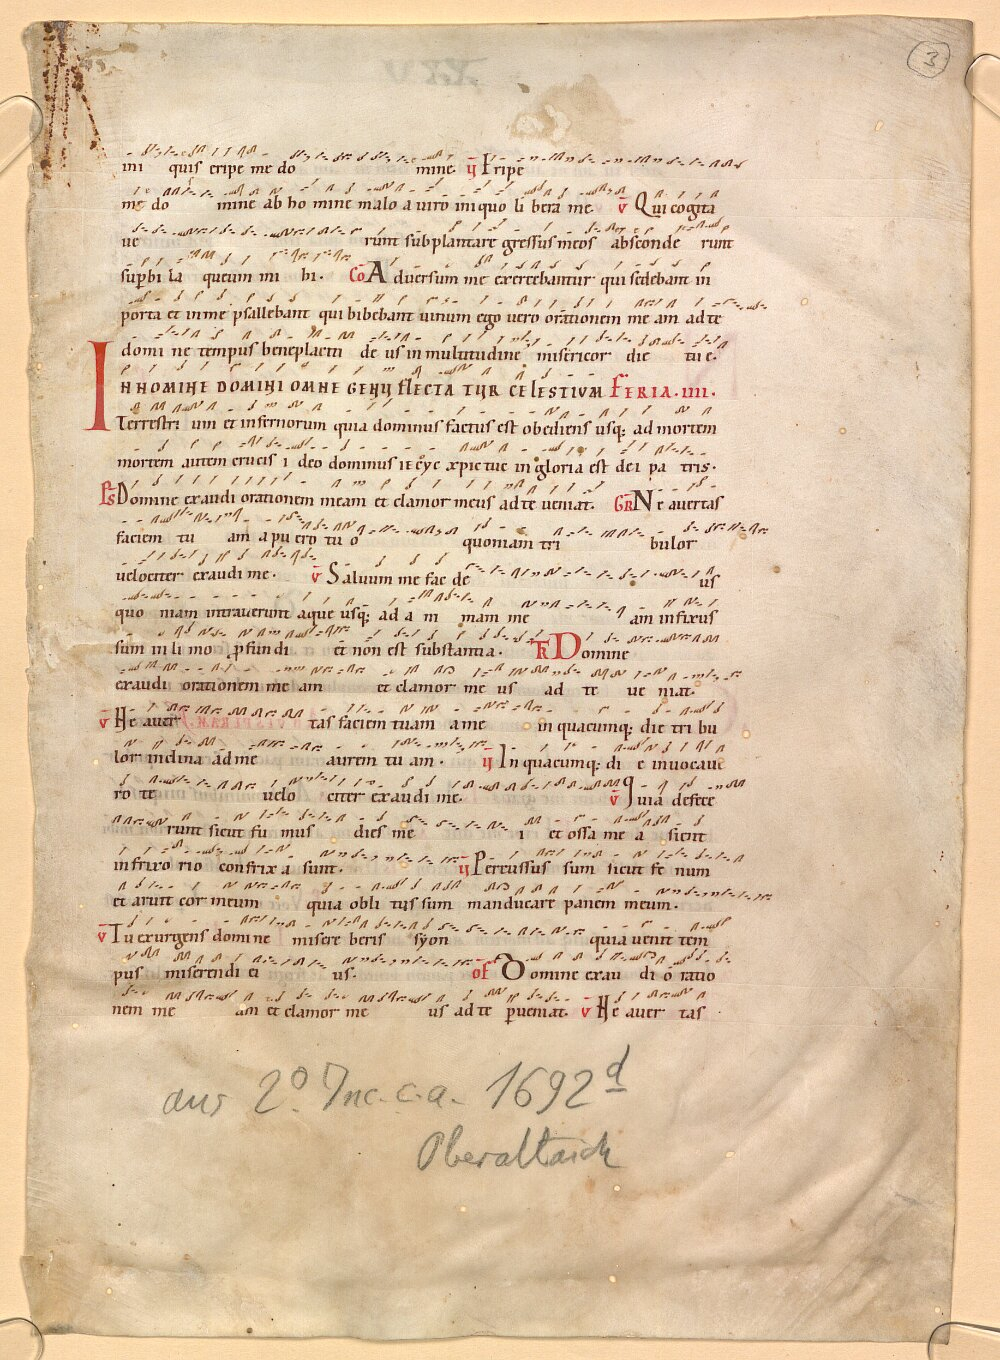 3
ini quis eripe me do mine. ẏ Eripe
me do mine ab ho mine malo a viro iniquo li bera me. v̄ Qui cogita
ve runt subplantare gressus meos absconde runt
sup̄bi la queum mi hi. Co Adversum me exercebantur qui sedebant in
porta et in me psallebant qui bibebant vinum ego vero orationem me am ad te
domi ne tempus beneplaciti de us in multitudine misericor die tu e.
IN NOMINE DOMINI OMNE GENU FLECTA TUR CELESTIUM FERIA. IIII.
Terrestri um et infernorum quia dominus factus est obediens usq; ad mortem
mortem autem crucis i deo dominus ie xpictue in gloria est dei pa tris.
Ps Domine exaudi orationem meam et clamor meus ad te veniat. GR Ne avertas
faciem tu am a pu ero tu o quoniam tri bulor
velociter exaudi me. v̄ Salvum me fac de us
quo niam intraverunt aque usq; ad a ni mam me am infixus
sum in li mo pfun di et non est substantia. TR Domine
exaudi orationem me am et clamor me us ad te ve niat.
v̄ Ne aver tas faciem tuam a me in quacumq; die tri bu
lor inclina ad me aurem tu am. ẏ In quacumq; di e invocave
ro te velo citer exaudi me. v̄ Quia defece
runt sicut fu mus dies me i et ossa me a sicut
in frixo rio confrix a sunt. ẏ Percussus sum sicut fe num
et aruit cor meum quia obli tus sum manducare panem meum.
v̄ Tu exurgens domine misere beris syon quia venit tem
pus miserendi ei us. of Domine exau di o ratio
nem me am et clamor me us ad te p̄veniat. v̄ Ne aver tas
aus 2° Inc. c.a. 1692 d
Oberaltaich